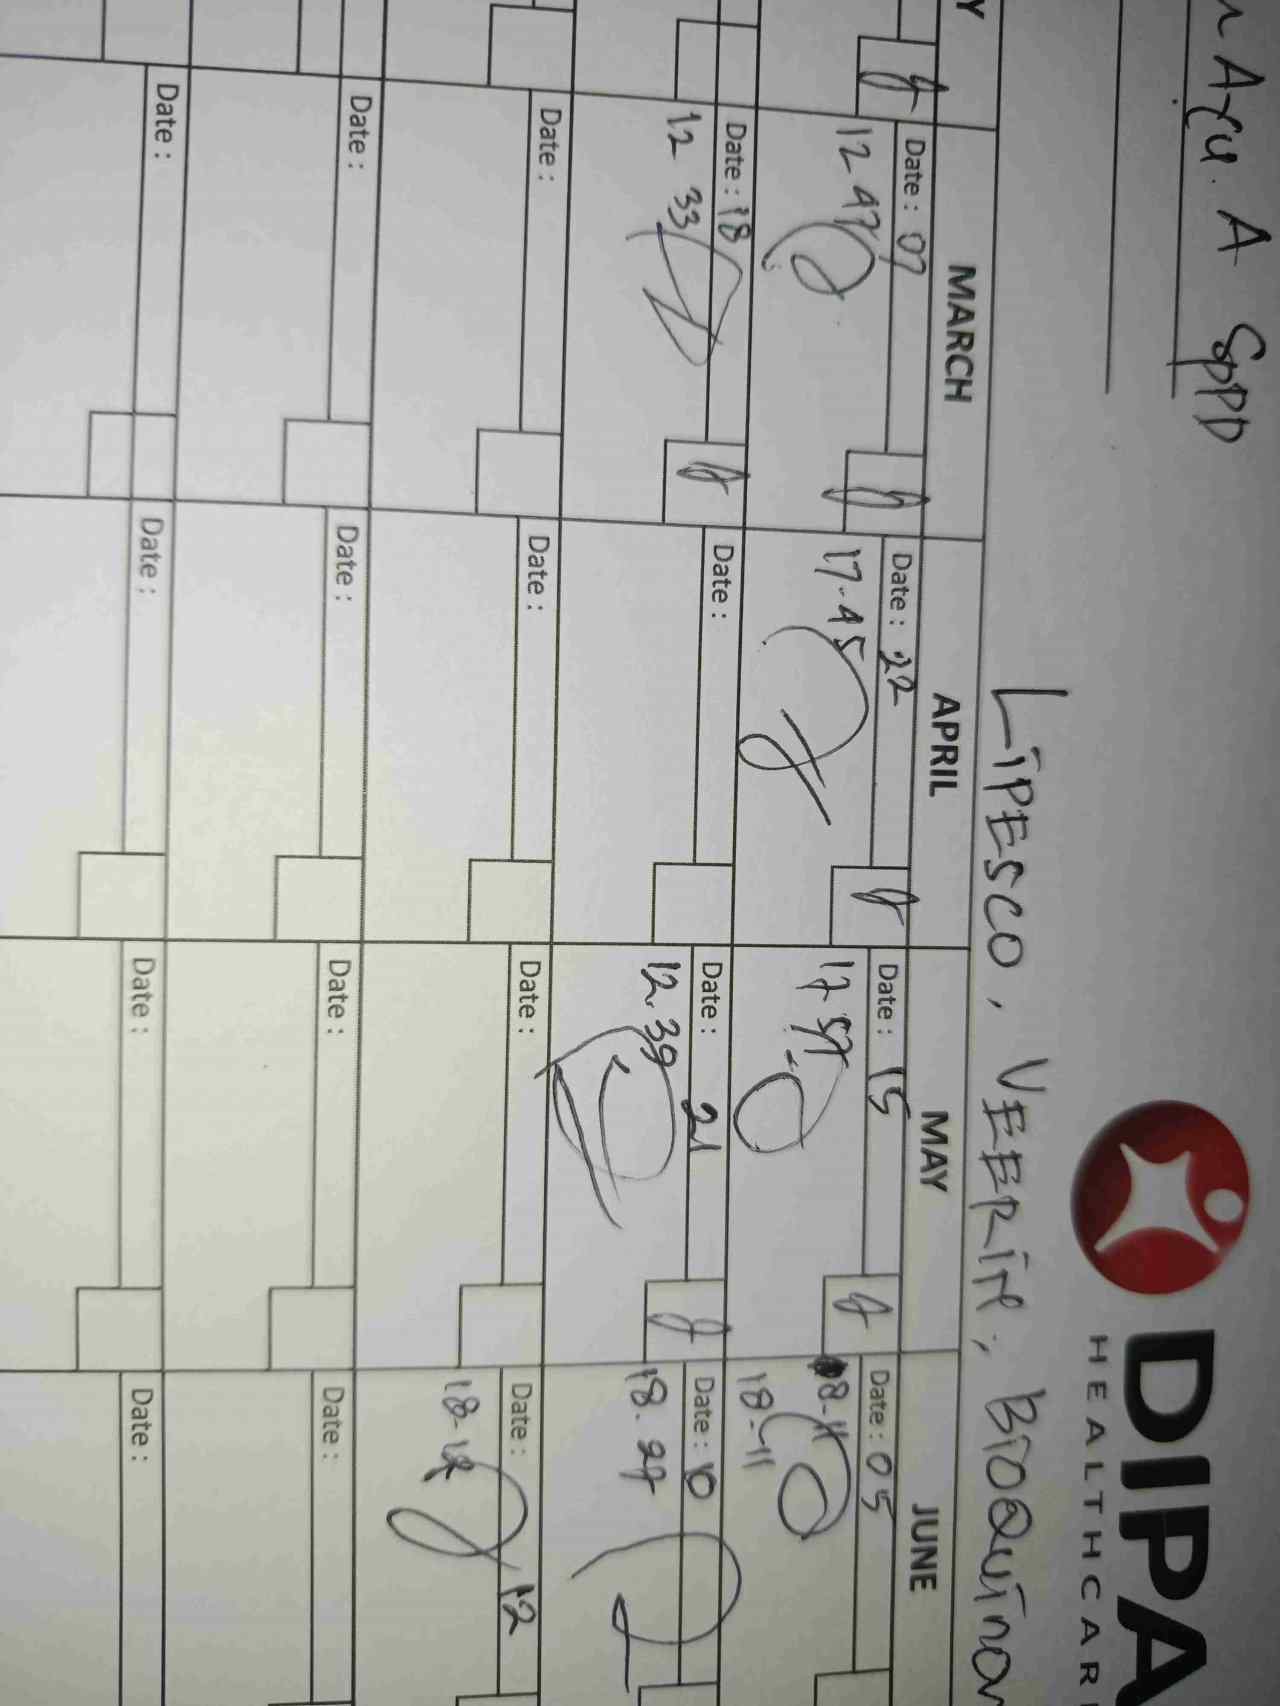 Ayu. A SpPD
DIPA
HEALTHCAR
LIPESCO, VEERIP,
Y MARCH APRIL MAY JUNE
Date : 07 Date : 22 Date : 15 Date : 05
12 47 17.45 17 57 18-11
18-11
Date : 18 Date : Date : 21 Date : 10
12 33 12.39 18.27
Date : Date : Date : Date : 12
18-12
Date : Date : Date : Date :
Date : Date : Date : Date :